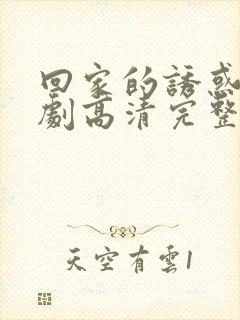 回家的誘惑
劇高清完整
天空有雲1